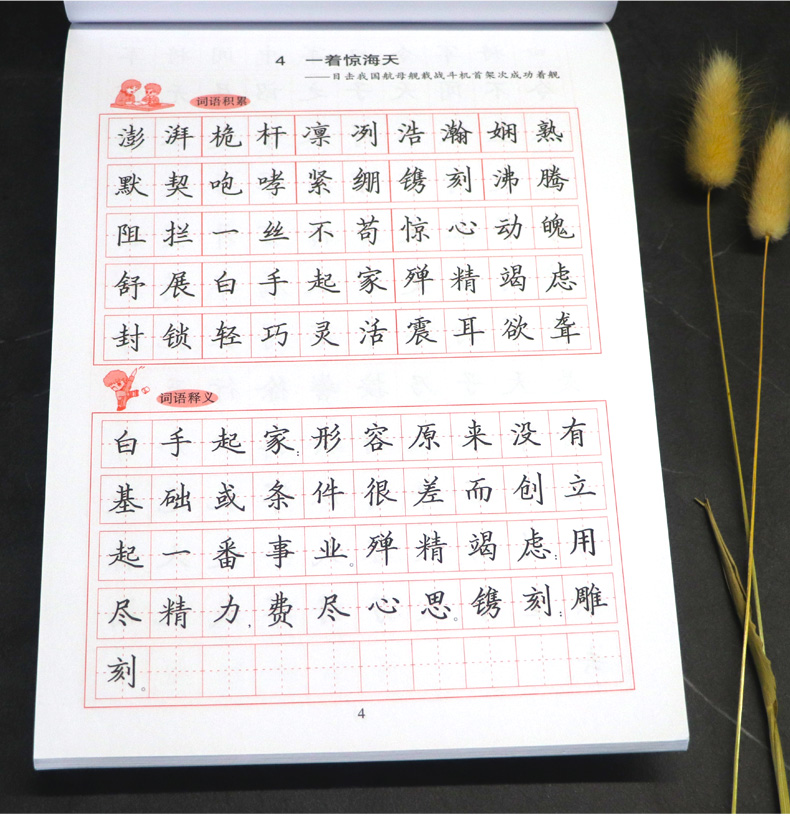 4 一着惊海天
——目击我国航母舰载战斗机首架次成功着舰
词语积累
澎湃桅杆凛冽浩瀚娴熟
默契咆哮紧绷镌刻沸腾
阻拦一丝不苟惊心动魄
舒展白手起家殚精竭虑
封锁轻巧灵活震耳欲聋
词语释义
白手起家:形容原来没有
基础或条件很差而创立
起一番事业。殚精竭虑:用
尽精力,费尽心思。镌刻:雕
刻。
4